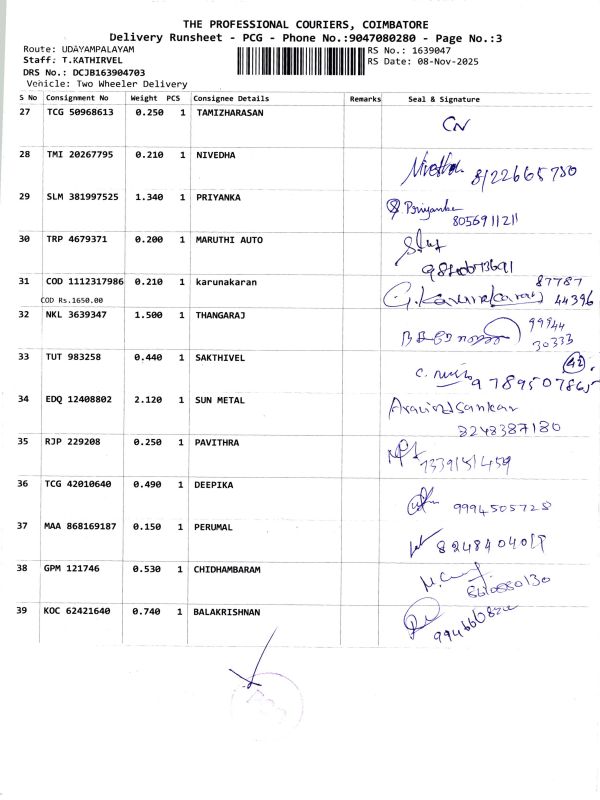 THE PROFESSIONAL COURIERS, COIMBATORE
Delivery Runsheet - PCG - Phone No.:9047080280 - Page No.:3
Route: UDAYAMPALAYAM RS No.: 1639047
Staff: T.KATHIRVEL RS Date: 08-Nov-2025
DRS No.: DCJB163904703
Vehicle: Two Wheeler Delivery
S No Consignment No Weight PCS Consignee Details Remarks Seal & Signature
27 TCG 50968613 0.250 1 TAMIZHARASAN
28 TMI 20267795 0.210 1 NIVEDHA Nivedha 8122665780
29 SLM 381997525 1.340 1 PRIYANKA Priyanka
8056911211
30 TRP 4679371 0.200 1 MARUTHI AUTO
31 COD 1112317986 0.210 1 karunakaran 87787
COD Rs.1650.00 G.Karunakaran 44396
32 NKL 3639347 1.500 1 THANGARAJ 99944
30333
33 TUT 983258 0.440 1 SAKTHIVEL 42
9789507865
34 EDQ 12408802 2.120 1 SUN METAL Aravind Sankar
8248387180
35 RJP 229208 0.250 1 PAVITHRA
7339151459
36 TCG 42010640 0.490 1 DEEPIKA
9994505728
37 MAA 868169187 0.150 1 PERUMAL
38 GPM 121746 0.530 1 CHIDHAMBARAM
8610880130
39 KOC 62421640 0.740 1 BALAKRISHNAN